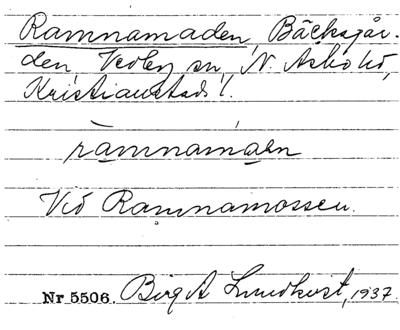 Ramnamaden, Bäcksgår-
den, Vedby sn, N. Åsbo hd,
Kristianstads l.
ramnamaen
Vid Ramnamossen.
Nr 5506. Birg A Lundkvist, 1937.